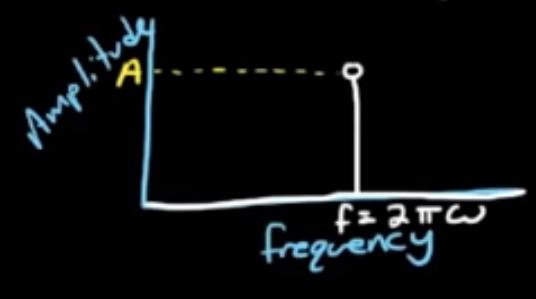 Amplitude
A
f = 2πω
frequency